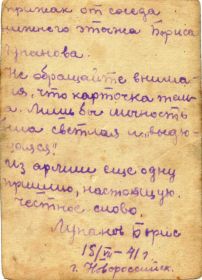 от соседа
нижнего этажа Бориса
Лупанова.
Не обращайте внима
я, что карточка тем
а. Лишь вы личность
ла светлая и "выдю
щаяся"
из армии еще одну
пришлю, настоящую.
честное слово.
Лупанов Борис
15/VII - 41 г.
г. Новороссийск.